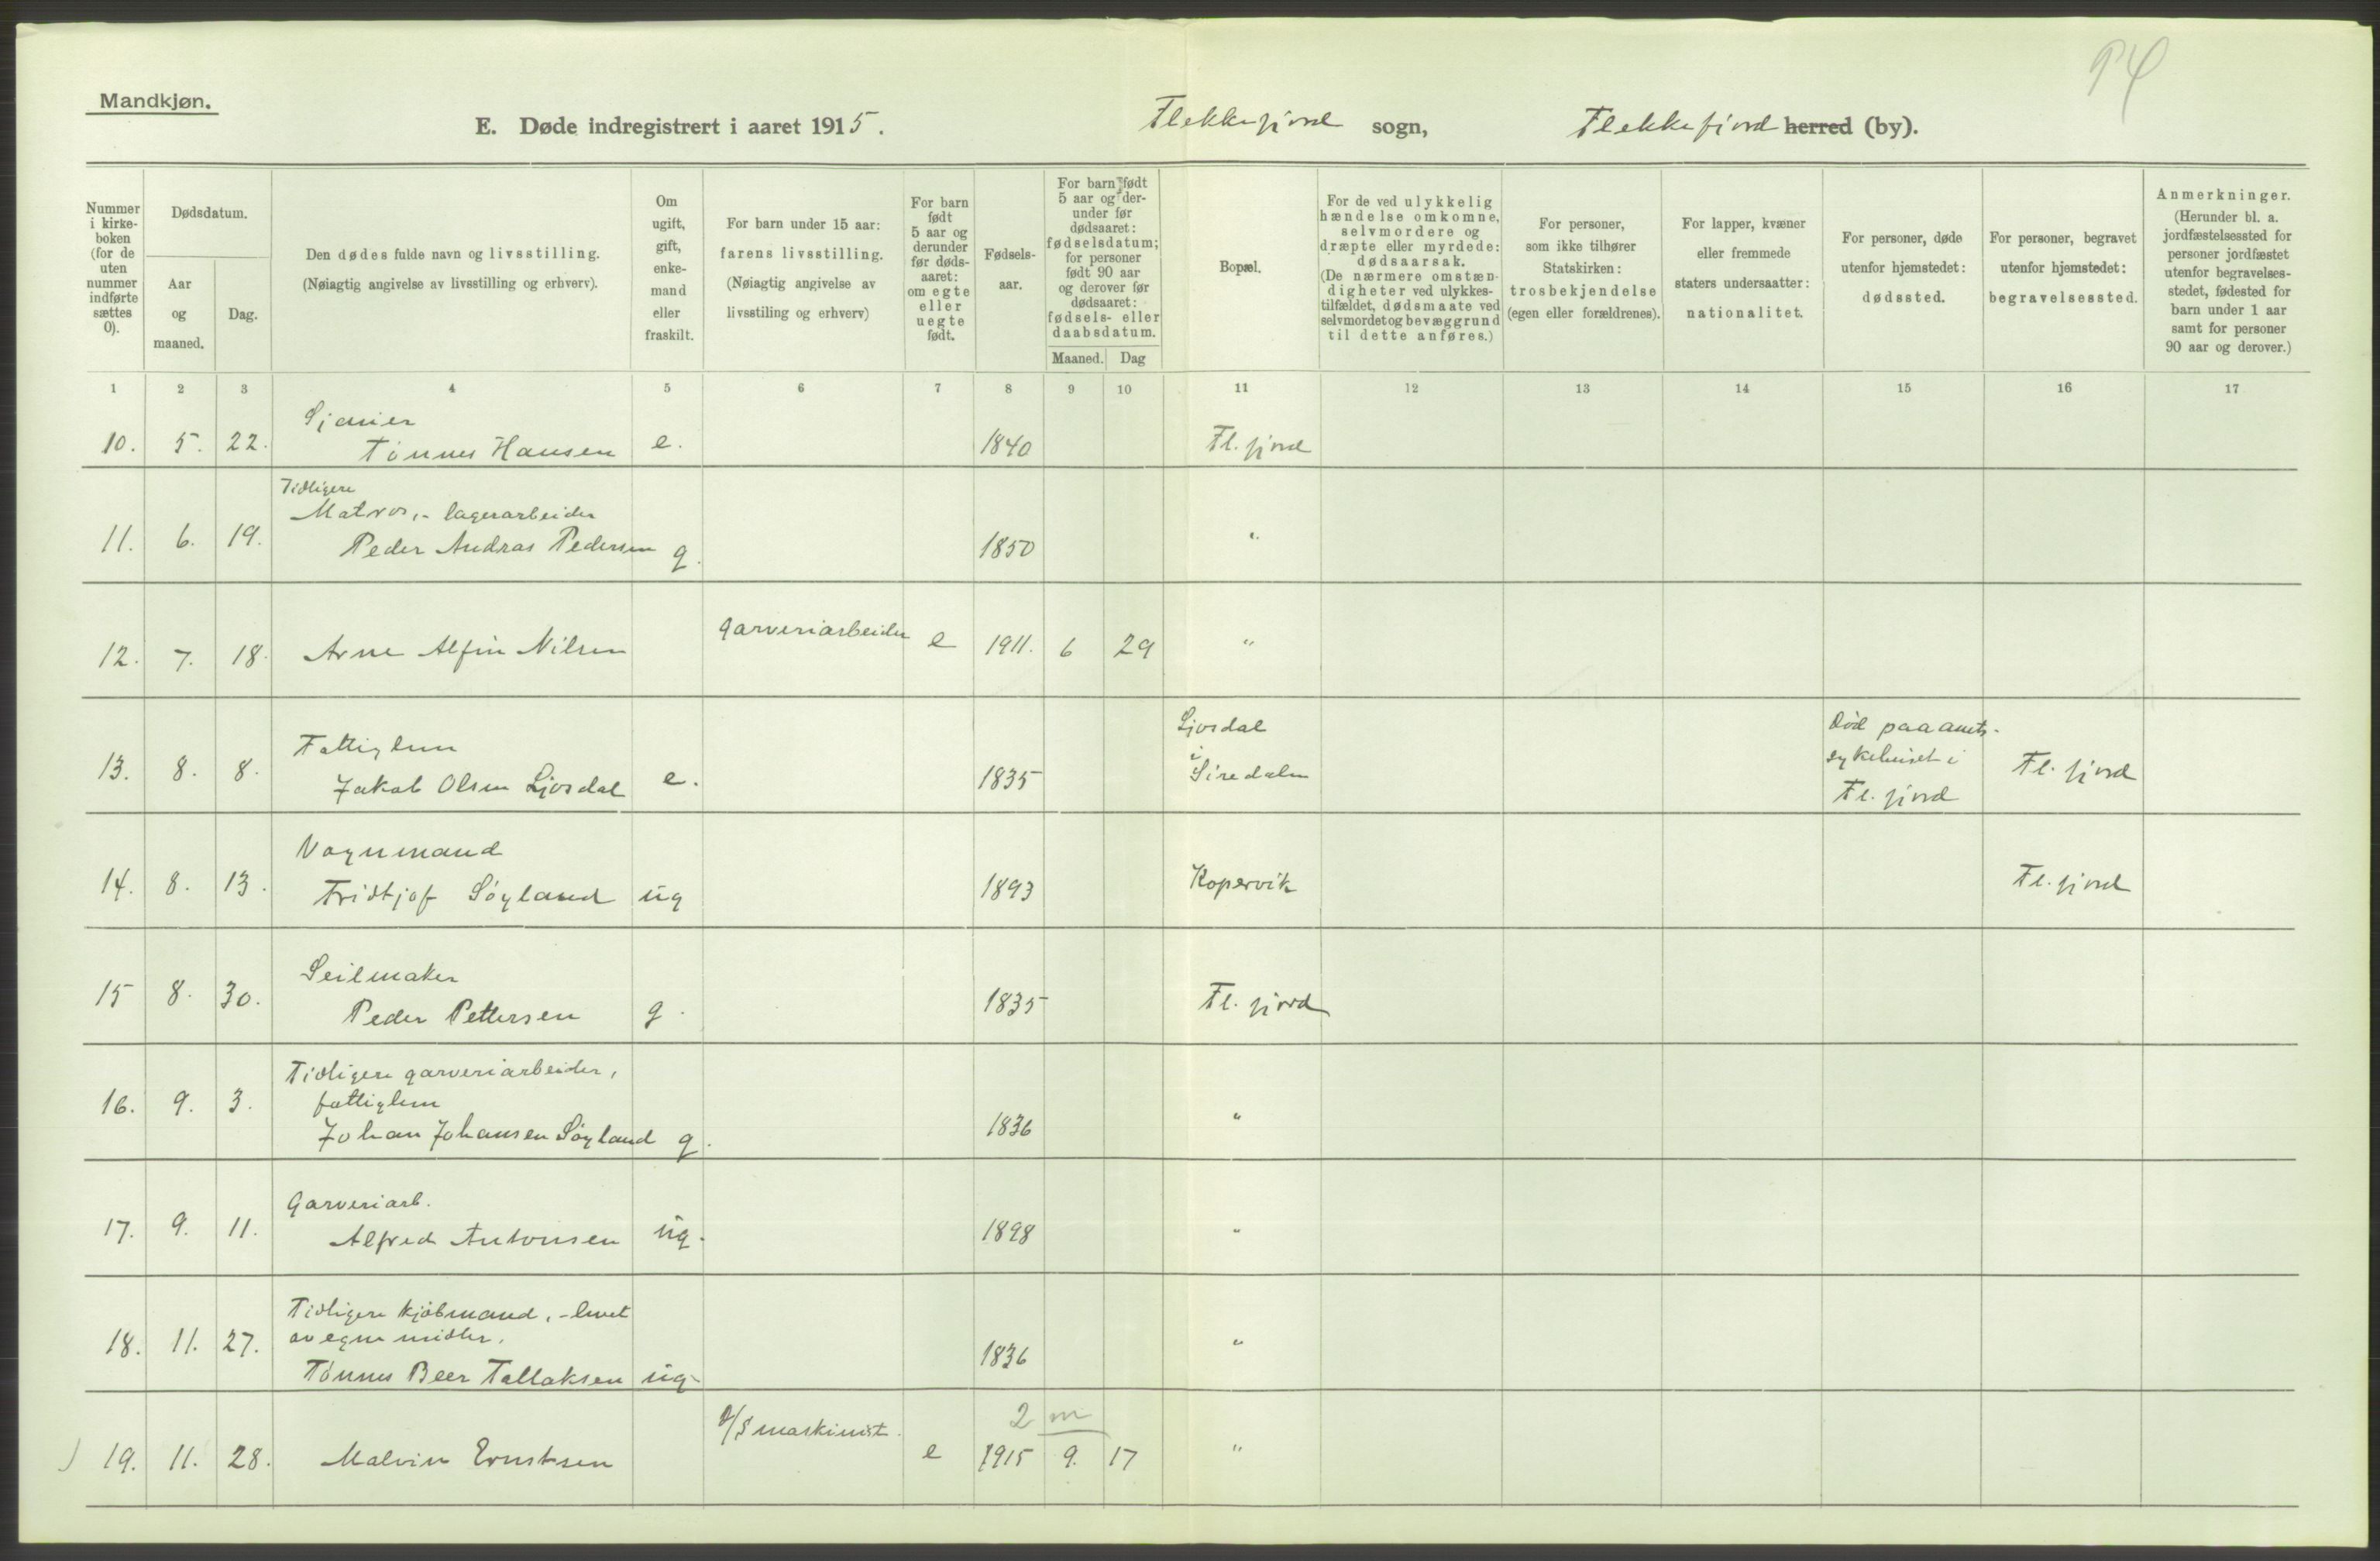 94
Mandkjøn.
E. Døde indregistrert i aaret 1915. Flekkefjord sogn, Flekkefjord herred (by).
Nummer i kirke-boken (for de uten nummer indførte sættes 0).
Dødsdatum.
Aar og maaned.
Dag.
Den dødes fulde navn og livsstilling.
(Nøiagtig angivelse av livsstilling og erhverv).
Om ugift, gift, enke-mand eller fraskilt.
For barn under 15 aar: farens livsstilling. (Nøiagtig angivelse av livsstiling og erhverv)
For barn født 5 aar og derunder før døds-aaret: om egte eller uegte født.
Fødsels-aar.
For barn født 5 aar og der-under før dødsaaret: fødselsdatum; for personer født 90 aar og derover før dødsaaret: fødsels- eller daabsdatum.
Maaned. Dag
Bopæl.
For de ved ulykkelig hændelse omkomne, selvmordere og dræpte eller myrdede: dødsaarsak. (De nærmere omstæn-digheter ved ulykkes-tilfældet, dødsmaate ved selvmordet og bevæggrund til dette anføres.)
For personer, som ikke tilhører Statskirken: trosbekjendelse (egen eller forældrenes).
For lapper, kvæner eller fremmede staters undersaatter: nationalitet.
For personer, døde utenfor hjemstedet: dødssted.
For personer, begravet utenfor hjemstedet: begravelsessted.
Anmerkninger. (Herunder bl. a. jordfæstelsessted for personer jordfæstet utenfor begravelses-stedet, fødested for barn under 1 aar samt for personer 90 aar og derover.)
1 2 3 4 5 6 7 8 9 10 11 12 13 14 15 16 17
10. 5. 22. Tønnes Hansen e. 1840 Fl.fjord
Tidligere
Matros,- lagerarbeider
11. 6. 19. Peder Andras Pedersen g. 1850 "
12. 7. 18. Arne Alfin Nilsen garveriarbeider e 1911. 6 29 "
Fattiglem
13. 8. 8. Jakob Olsen Ljosdal e. 1835 Ljosdal i Siredalen Död paa amts-sykehuset i Fl.fjord Fl.fjord
Vognmand
14. 8. 13. Fridtjof Söyland ug 1893 Kopervik Fl.fjord
Seilmaker
15 8. 30. Peder Pettersen g. 1835 Fl.fjord
Tidligere garveriarbeider,
fattiglem
16. 9. 3. Johan Johansen Söyland g. 1836 "
Garveriarb.
17. 9. 11. Alfred Antonsen ug. 1898 "
Tidligere kjöbmand, - levet
av egne midler.
18. 11. 27. Tönnes Beer Tallaksen ug. 1836 "
2 m
19. 11. 28. Malvin Ernstsen D/S maskinist. e 1915 9. 17 "